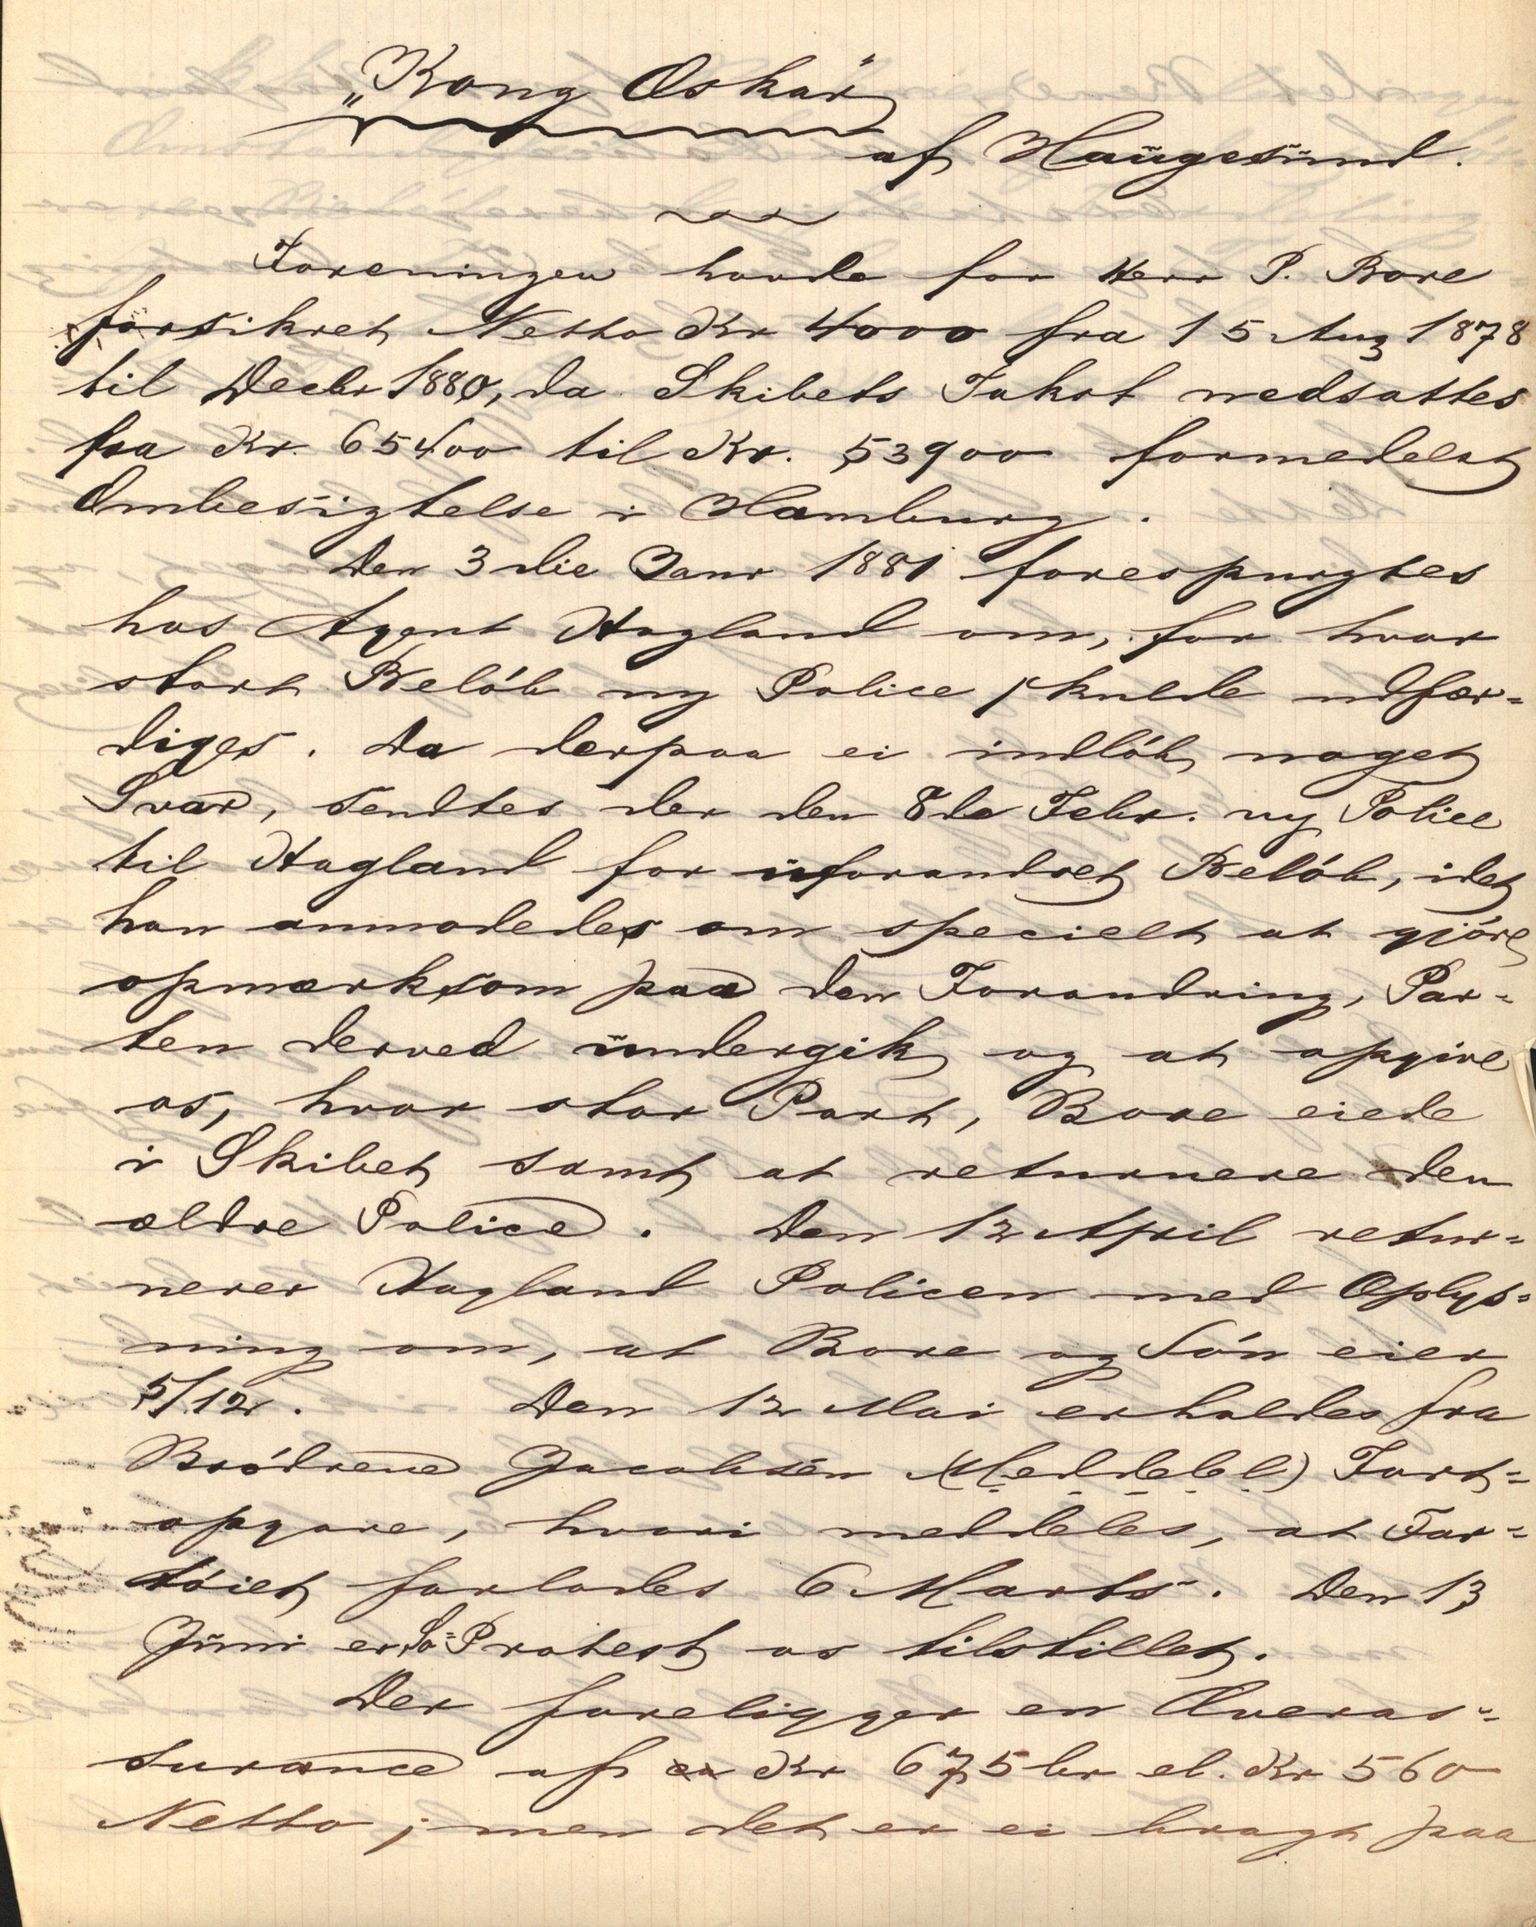 „Kong Oskar"
af Haugesund.
Foreningen havde for Herr P. Bore
forsikret Netto Kr 4000 fra 15 Aug 1878
til Decbr 1880, da Skibets Takst nedsattes
fra Kr. 65400 til Kr. 53900 formedelst
Ombesigtelse i Hamburg.
Den 3die Janr 1881 forespurgtes
hos Agent Hagland om, for hvor
stort Beløb ny Police skulde udfær=
diges. Da derpaa ei indløb noget
Svar, sendtes der den 8de Febr. ny Police
til Hagland for uforandret Beløb, idet
han anmodedes om specielt at gjøre
opmærksom paa den Forandring, Par=
ten derved undergik og at opgive
os, hvor stor Part, Bore eiede
i Skibet samt at returnere den
ældre Police. Den 12 April retur=
nerer Hagland Policen med Oplys=
ning om, at Bore og Søn eier
5/12. Den 12 Mai erholdes fra
Brødrene Jacobsen (Meddebl) Tort=
opgave, hvori meddeles, at Far=
tøiet forlodes 6 Marts. Den 13
Juni er Sø=Protest os tilstillet.
Der foreligger en Overas=
surance af Kr 675 br el. Kr 560
Netto; men det er ei bragt paa